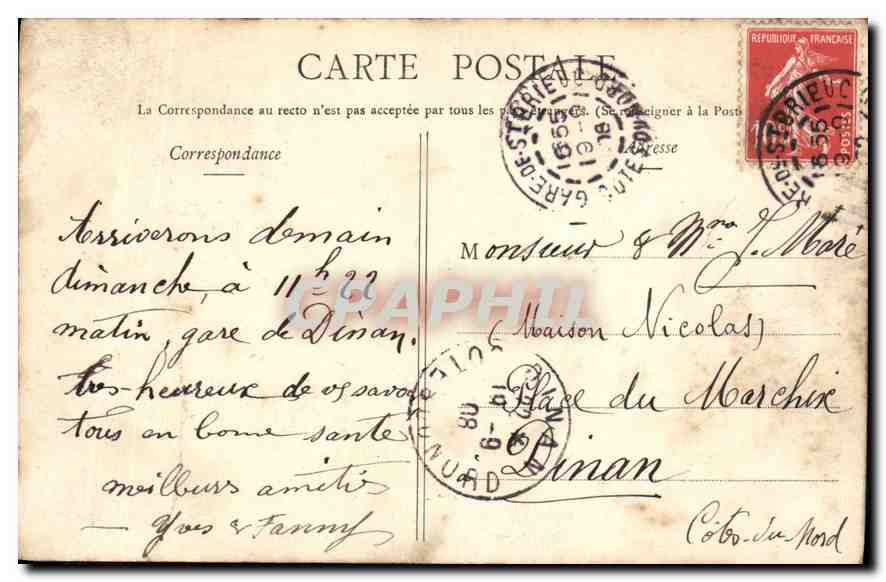 CARTE POSTALE
La Correspondance au recto n'est pas acceptée par tous les pays étrangers. (Se renseigner à la Poste
Correspondance
Arriverons demain
dimanche, à 11h 22
matin, gare de Dinan.
très-heureux de vs savoir
tous en bonne santé
meilleurs amitiés
— Yves & Fanny
Adresse
Monsieur & Mme J. Maré
(Maison Nicolas)
Place du Marchix
Dinan
Côtes-du-Nord
REPUBLIQUE FRANÇAISE
POSTES
GARE-DE-ST BRIEUC COTES-DU-NORD
16 55
19 -
08
GARE-DE-ST BRIEUC
16 55
19
DINAN COTES-DU-NORD
19 -9
08
CPAPHIL